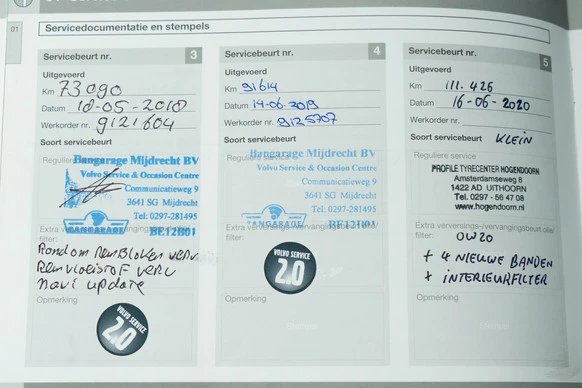 01
Servicedocumentatie en stempels
Servicebeurt nr. 3
Uitgevoerd
Km 73090
Datum 18-05-2018
Werkorder nr. 9121604
Soort servicebeurt
Reguliere
Bangarage Mijdrecht BV
Volvo Service & Occasion Centre
Communicatieweg 9
3641 SG Mijdrecht
Tel: 0297-281495
BANGARAGE BE12B01
Extra verversings-/vervangingsbeurt olie/
filter:
Rondom Remblokken verv.
Remvloeistof verv
Navi update
Opmerking
VOLVO SERVICE
2.0
Servicebeurt nr. 4
Uitgevoerd
Km 91614
Datum 14-06-2019
Werkorder nr. 9125707
Soort servicebeurt
Reguliere service
Bangarage Mijdrecht BV
Volvo Service & Occasion Centre
Communicatieweg 9
3641 SG Mijdrecht
Tel: 0297-281495
BANGARAGE BE12B01
Extra verversings-/vervangingsbeurt olie/
filter:
VOLVO SERVICE
2.0
Opmerking
Servicebeurt nr. 5
Uitgevoerd
Km 111.426
Datum 16-06-2020
Werkorder nr.
Soort servicebeurt KLEIN
Reguliere service
PROFILE TYRECENTER HOGENDOORN
Amsterdamseweg 8
1422 AD UITHOORN
Tel. 0297 - 56 47 08
www.hogendoorn.nl
Extra verversings-/vervangingsbeurt olie/
filter:
0W20
+ 4 NIEUWE BANDEN
+ INTERIEURFILTER
Opmerking